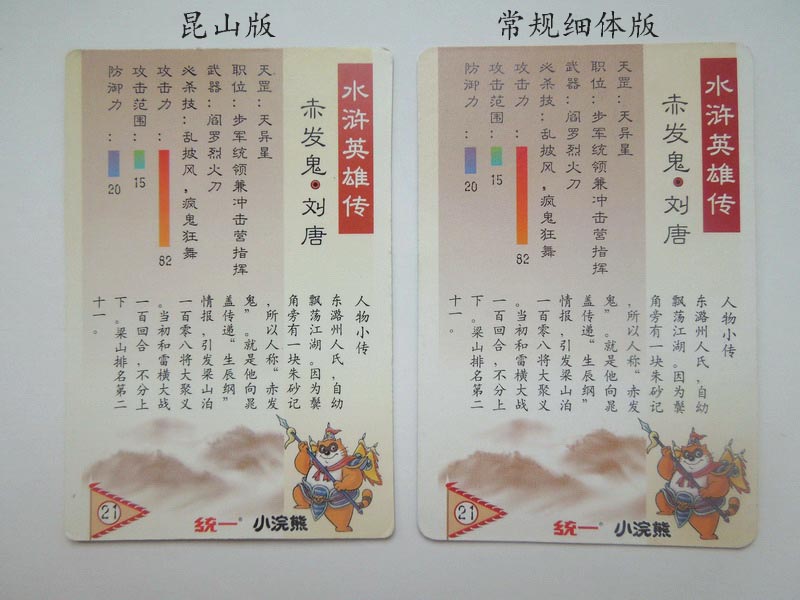 昆山版
水浒英雄传
赤发鬼·刘唐
天罡：天异星
职位：步军统领兼冲击营指挥
武器：阎罗烈火刀
必杀技：乱披风，疯鬼狂舞
攻击力：
82
攻击范围：
15
防御力：
20
人物小传
东潞州人氏，自幼
飘荡江湖。因为鬓
角旁有一块朱砂记
，所以人称“赤发
鬼”。就是他向晁
盖传递“生辰纲”
情报，引发梁山泊
一百零八将大聚义
。当初和雷横大战
一百回合，不分上
下。梁山排名第二
十一。
21
统一®
小浣熊
常规细体版
水浒英雄传
赤发鬼·刘唐
天罡：天异星
职位：步军统领兼冲击营指挥
武器：阎罗烈火刀
必杀技：乱披风，疯鬼狂舞
攻击力：
82
攻击范围：
15
防御力：
20
人物小传
东潞州人氏，自幼
飘荡江湖。因为鬓
角旁有一块朱砂记
，所以人称“赤发
鬼”。就是他向晁
盖传递“生辰纲”
情报，引发梁山泊
一百零八将大聚义
。当初和雷横大战
一百回合，不分上
下。梁山排名第二
十一。
21
统一®
小浣熊